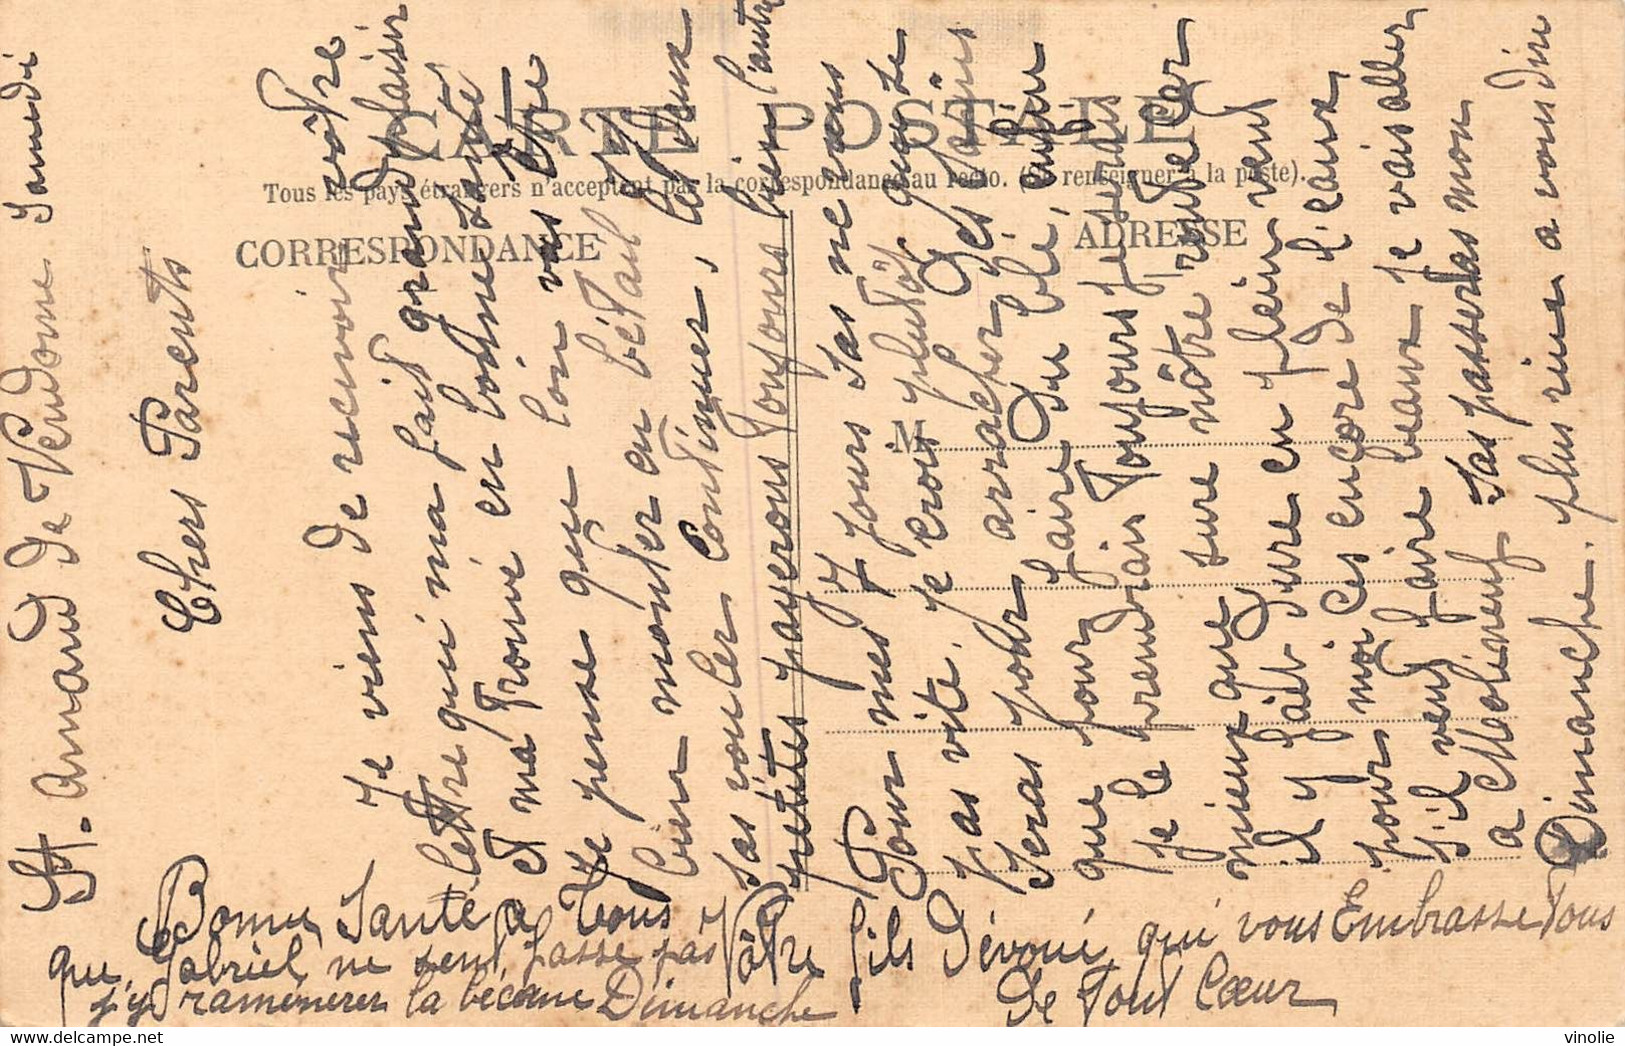 CARTE POSTALE
Tous les pays étrangers n'acceptent pas la correspondance au recto. (Se renseigner à la poste).
CORRESPONDANCE
ADRESSE
M
St. Amand de Vendôme Samedi
Chers Parents
Je viens de recevoir vôtre
lettre qui ma fait grand plaisir
et me trouve en bonne santé
Je pense que loin vas être
bien monter en bétail
sas vouler continuer, les deux
petites payerons toujours bien l'autre
Pour mes 7 jours sas ne vous
pas vite. Je crois plutôt que se
seras pour arracher Les Sains
que pour faire du blé, enfin
Je le prendrai toujours se serais
mieux que sure nôtre rendel car
il y fait dure en plein vend
pour moi ces encore de l'eaux
s'il veut faire beaux Je vais aller
a Molineuf Sas passerdas mon
Dimanche. plus rien a vous dire
que Bonne Santé a Tous Vôtre fils Dévoué qui vous Embrasse Tous
De Tout Cœur
Gabriel ne sent fasse pas
j'y ramènerer la bécane Dimanche
vinolie